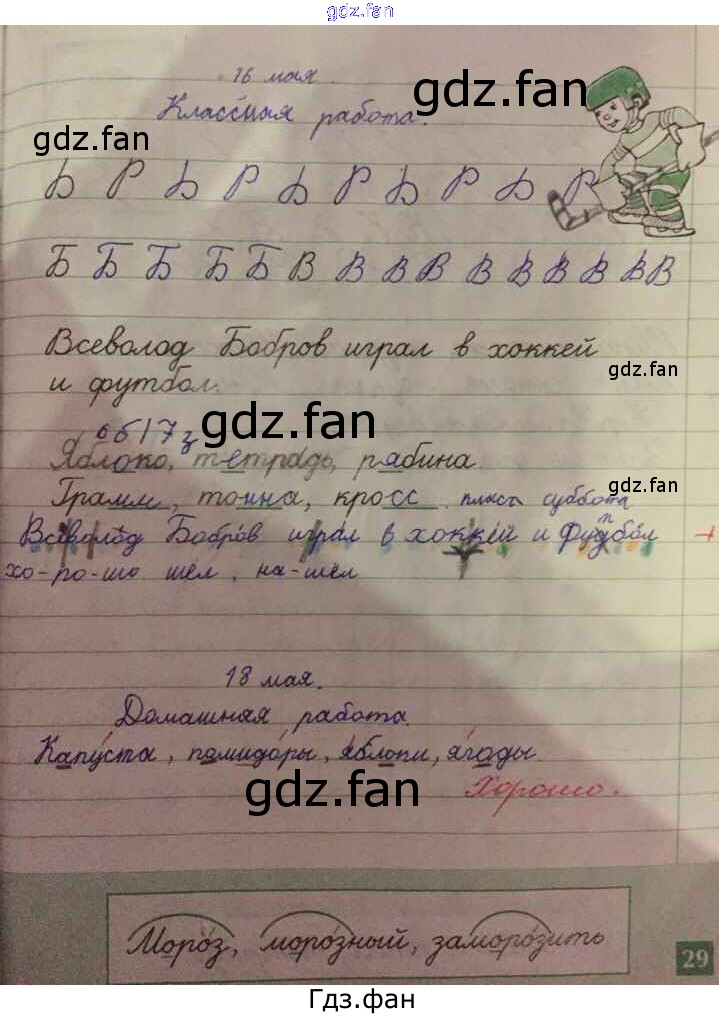 gdz.fan
16 мая.
gdz.fan
Классная работа.
gdz.fan
Ь Р Ь Р Ь Р Ь Р Ь Р
Б Б Б Б Б В В В В В В В В В В
Всеволод Бобров играл в хоккей
gdz.fan
и футбол.
gdz.fan
Яблоко, тетрадь, рябина.
gdz.fan
Грамм, тонна, кросс суббота
Всеволод Бобров играл в хоккей и Фудбол
хо-ро-шо шёл, на-шёл
18 мая.
Домашняя работа.
Капуста, памидоры, яблоки, ягоды.
gdz.fan
Хорошо.
Мороз, морозный, заморозить
29
Гдз.фан